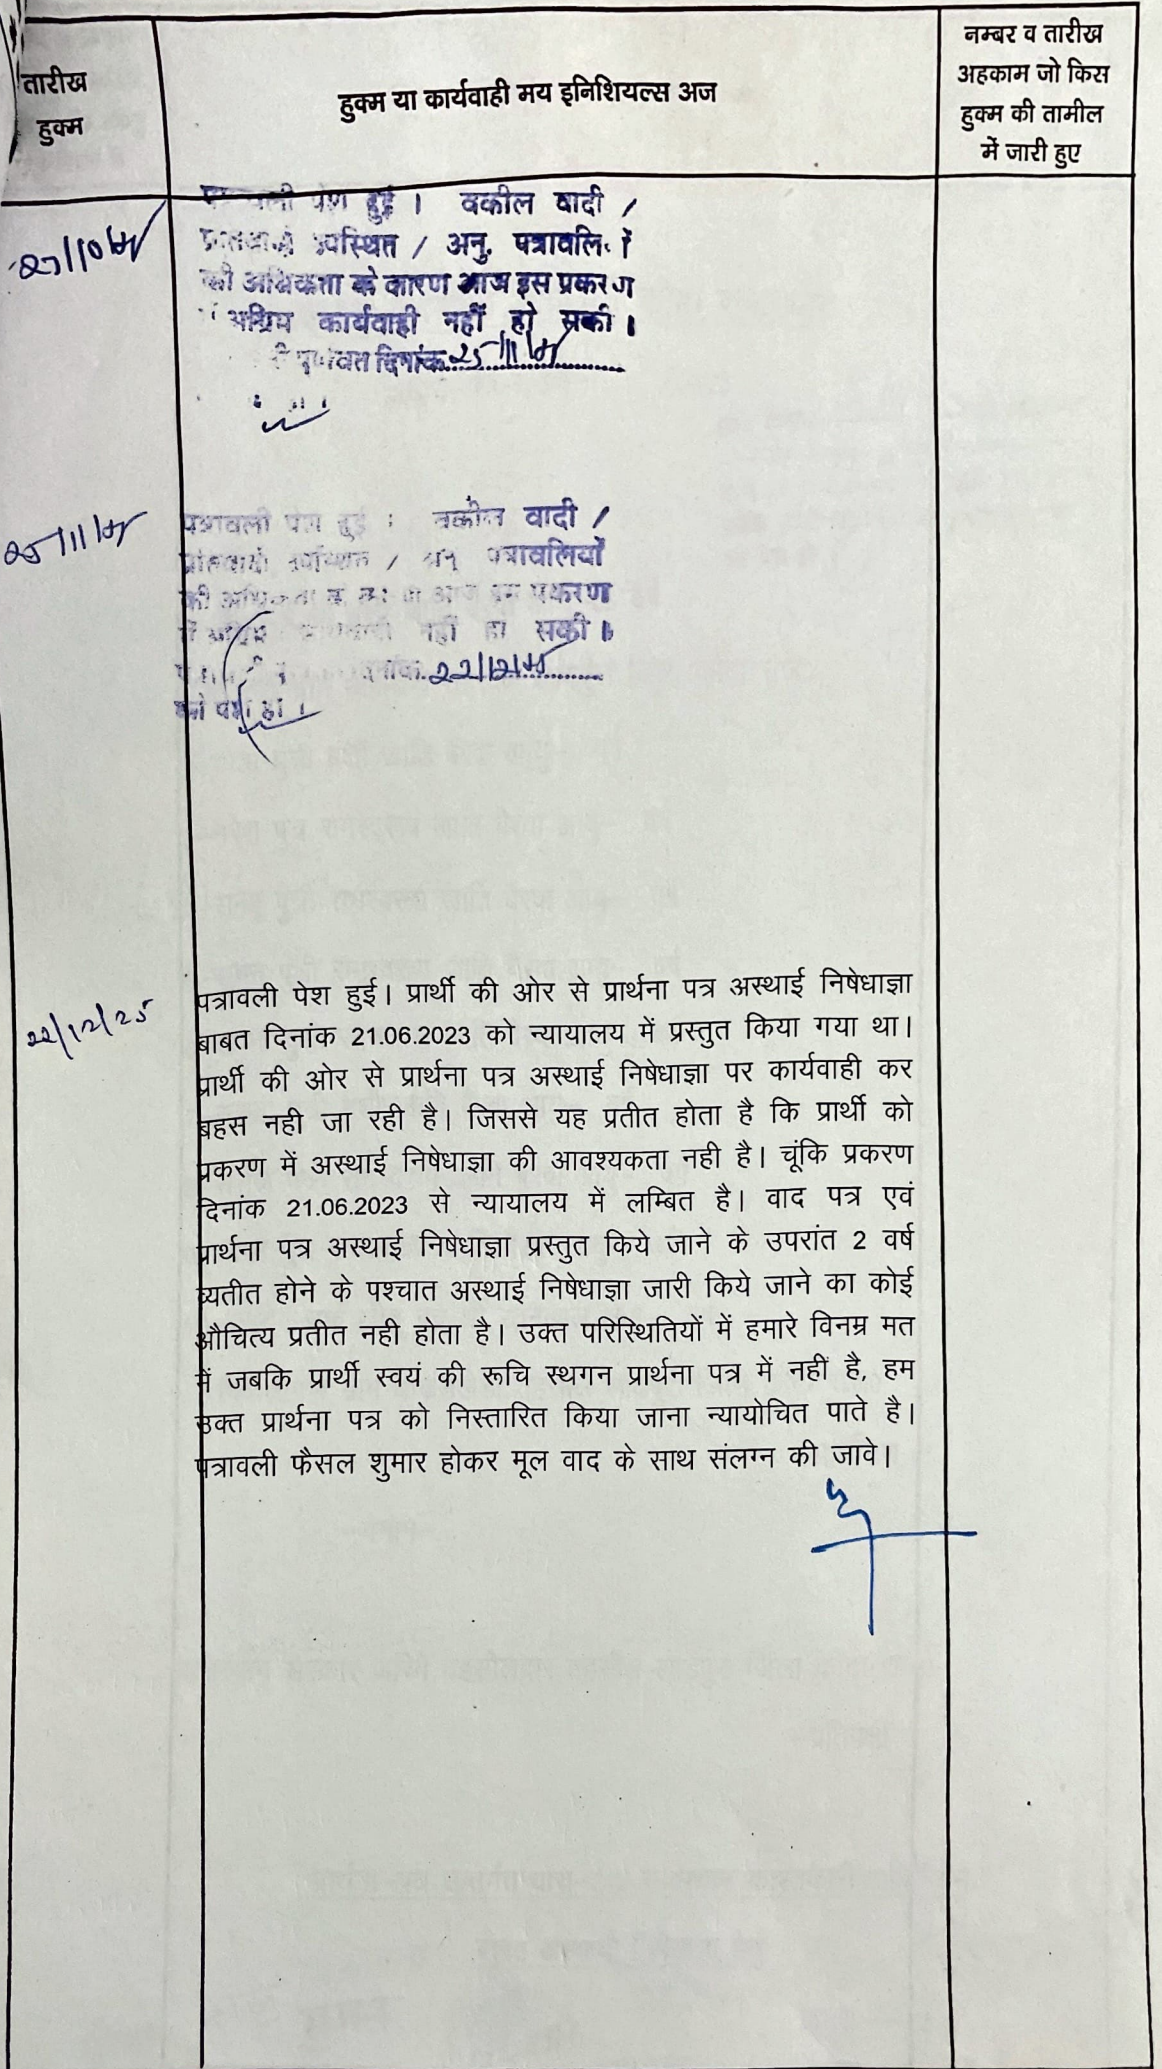 तारीख
हुक्म
हुक्म या कार्यवाही मय इनिशियल्स अज
नम्बर व तारीख
अहकाम जो किस
हुक्म की तामील
में जारी हुए
पेश हुई । वकील वादी /
उपस्थित / अनु. पत्रावलियों
की अधिकता के कारण आज इस प्रकरण
अग्रिम कार्यवाही नहीं हो सकी ।
दिनांक 25/11/25
25/11/25
पत्रावली पेश हुई । वकील वादी /
प्रतिवादी उपस्थित / अनु पत्रावलियों
की अधिकता के आज इस प्रकरण
में अग्रिम कार्यवाही नहीं हो सकी ।
दिनांक 22/12/25
को पेश हो ।
22/12/25
पत्रावली पेश हुई। प्रार्थी की ओर से प्रार्थना पत्र अस्थाई निषेधाज्ञा
बाबत दिनांक 21.06.2023 को न्यायालय में प्रस्तुत किया गया था।
प्रार्थी की ओर से प्रार्थना पत्र अस्थाई निषेधाज्ञा पर कार्यवाही कर
बहस नही जा रही है। जिससे यह प्रतीत होता है कि प्रार्थी को
प्रकरण में अस्थाई निषेधाज्ञा की आवश्यकता नही है। चूंकि प्रकरण
दिनांक 21.06.2023 से न्यायालय में लम्बित है। वाद पत्र एवं
प्रार्थना पत्र अस्थाई निषेधाज्ञा प्रस्तुत किये जाने के उपरांत 2 वर्ष
व्यतीत होने के पश्चात अस्थाई निषेधाज्ञा जारी किये जाने का कोई
औचित्य प्रतीत नही होता है। उक्त परिस्थितियों में हमारे विनम्र मत
में जबकि प्रार्थी स्वयं की रूचि स्थगन प्रार्थना पत्र में नहीं है, हम
उक्त प्रार्थना पत्र को निस्तारित किया जाना न्यायोचित पाते है।
पत्रावली फैसल शुमार होकर मूल वाद के साथ संलग्न की जावे।